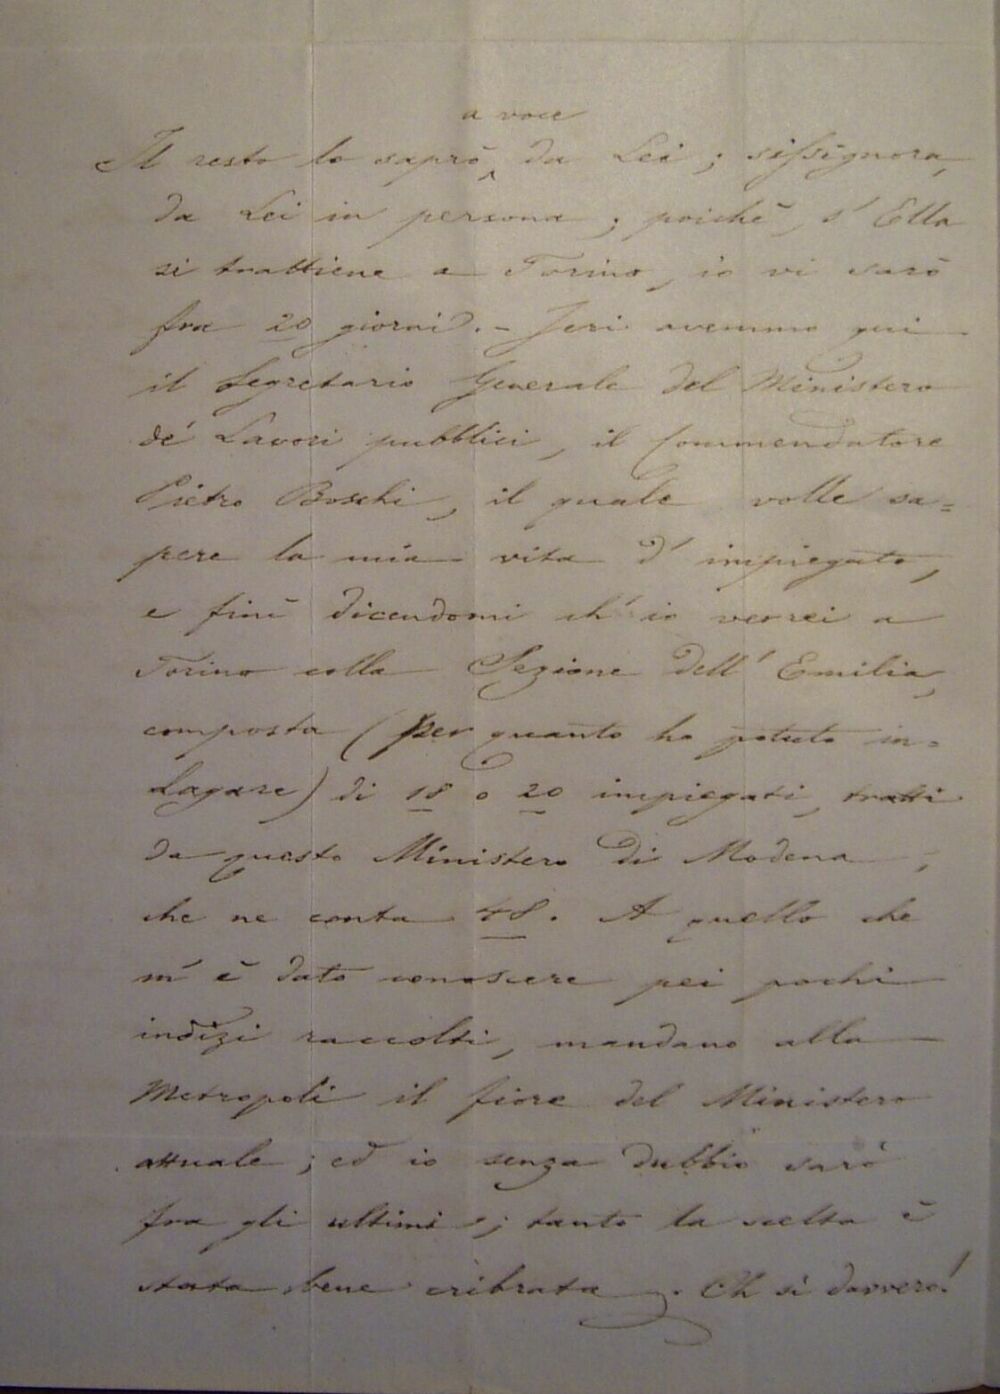 a voce
Il resto lo saprò da Lei; sissignora,
da Lei in persona; poichè, s'Ella
si trattiene a Torino, io vi sarò
fra 20 giorni. - Jeri avemmo qui
il Segretario Generale del Ministero
de' Lavori pubblici, il Commendatore
Pietro Boschi, il quale volle sa=
pere la mia vita d'impiegato,
e finì dicendomi ch'io verrei a
Torino colla Sezione dell'Emilia,
composta (per quanto ho potuto in=
dagare) di 18 o 20 impiegati, tratti
da questo Ministero di Modena,
che ne conta 48. A quello che
m'è dato conoscere pei pochi
indizi raccolti, mandano alla
Metropoli il fiore del Ministero
attuale; ed io senza dubbio sarò
fra gli ultimi; tanto la scelta è
stata bene cribrata. Oh sì davvero!